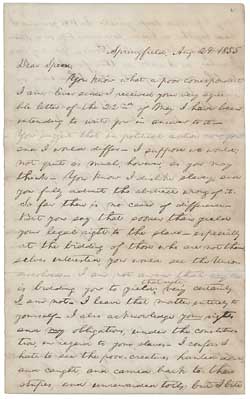 Springfield, Aug. 24. 1855
Dear Speed:
You know what a poor correspondent
I am. Ever since I received your very agree-
able letter of the 22nd of May I have been
intending to write you in answer to it.
You suggest that in political action now, you
and I would differ. I suppose we would;
not quite as much, however, as you may
think. You know I dislike slavery; and
you fully admit the abstract wrong of it.
So far there is no cause of difference.
But you say that sooner than yield
your legal right to the slave — especially
at the bidding of those who are not them-
selves interested, you would see the Union
dissolved. I am not aware that any one
is bidding you to yield that right; very certainly
I am not. I leave that matter entirely to
yourself. I also acknowledge your rights
and my obligations, under the constitu-
tion, in regard to your slaves. I confess I
hate to see the poor creatures hunted down,
and caught, and carried back to their
stripes, and unrewarded toils; but I bite